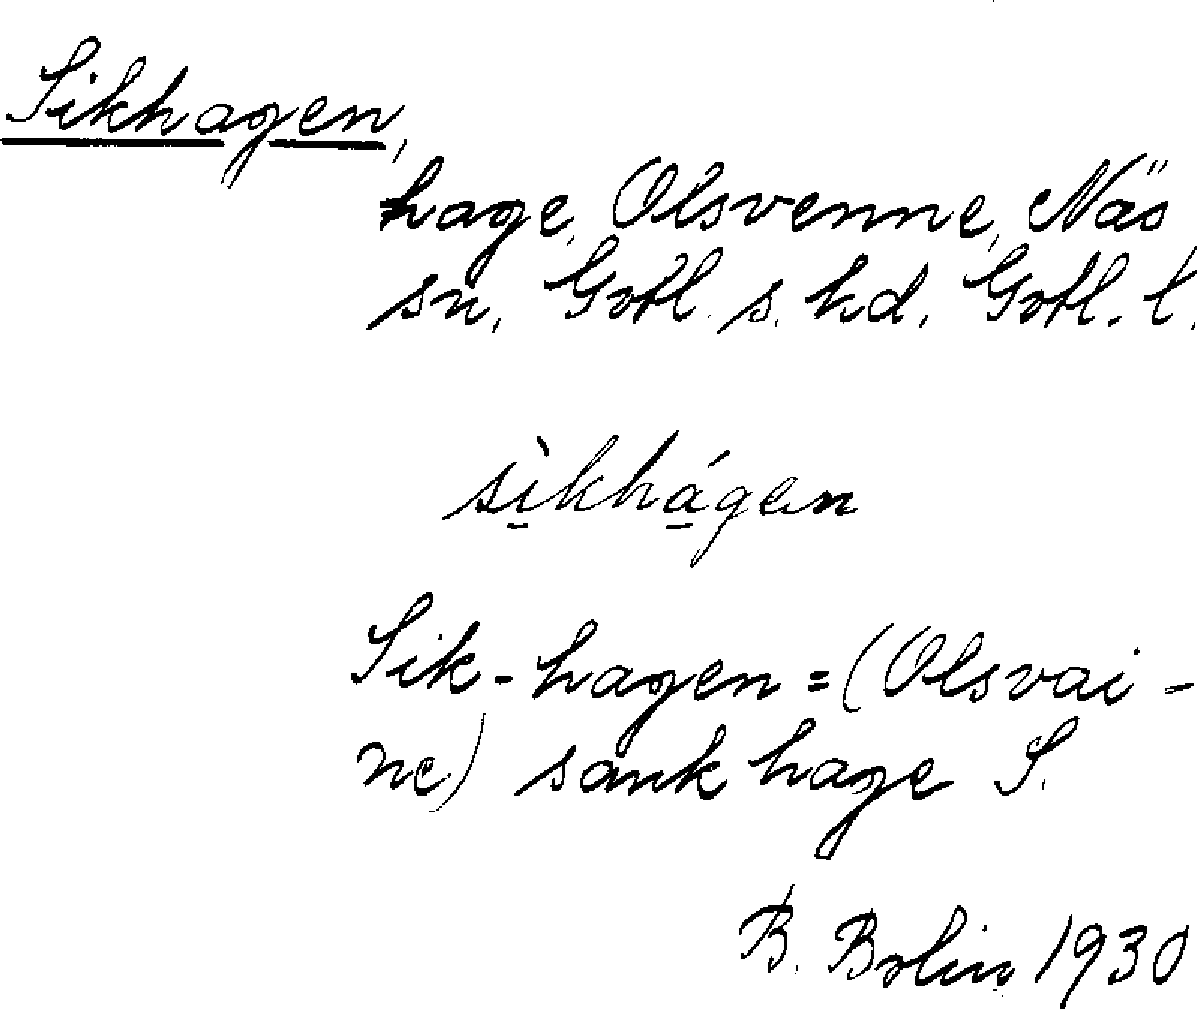 Sikhagen,
hage, Olsvenne, Näs
sn, Gotl. s. hd. Gotl. l.
sì̱khá̱gen
Sik-hagen = (Olsvai-
ne) sank hage S.
B. Bolin 1930